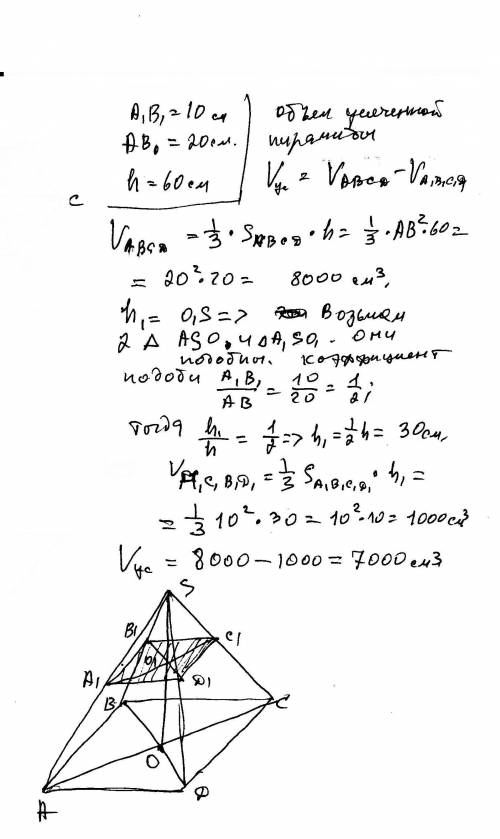 A₁B₁ = 10 см
AB = 20 см.
h = 60 см
Объем усеченной
пирамиды
Vус = VABCD − VA₁B₁C₁D₁
с
VABCD = 1/3 · SABCD · h = 1/3 · AB² · 60 =
= 20² · 20 = 8000 см³,
h₁ = O₁S => Возьмем
2 Δ ASO и ΔA₁SO₁. Они
подобны. Коэффициент
подоби A₁B₁/AB = 10/20 = 1/2;
тогда h₁/h = 1/2 => h₁ = 1/2 h = 30 см,
VA₁C₁B₁D₁ = 1/3 SA₁B₁C₁D₁ · h₁ =
= 1/3 10² · 30 = 10² · 10 = 1000 см³
Vус = 8000 − 1000 = 7000 см³
S
B₁ C₁
O₁
A₁ D₁
B C
O
A D